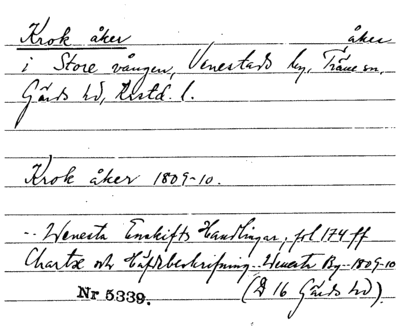 Krok åker åker
i Store vången, Venestads by, Träne sn,
Gärds hd, Krstd. l.
Krok åker 1809-10.
-- Wenesta Enskifts Handlingar, fol. 174 ff
Chartæ och Häfdebeskrifning .. Wenesta By .. 1809-10
Nr 5339. (D 16 Gärds hd).